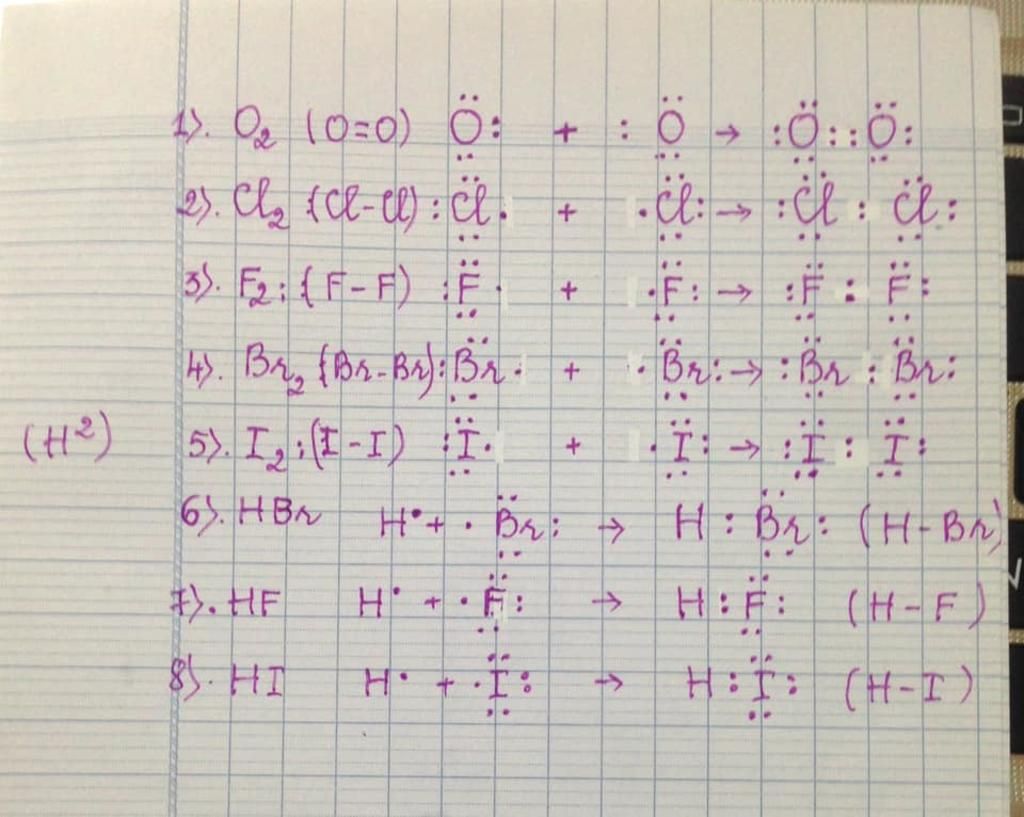 1). O₂ (O=O) Ö̤: + :Ö̤ → :Ö̤::Ö̤:
2). Cl₂ (Cl-Cl) :C̈l̤. + .C̈l̤: → :C̈l̤ : C̈l̤:
3). F₂: (F-F) :F̤̈. + .F̤̈: → :F̤̈ : F̤̈:
4). Br₂ (Br-Br) :B̤̈r. + .B̤̈r: → :B̤̈r : B̤̈r:
(H²) 5). I₂: (I-I) :Ï̤. + .Ï̤: → :Ï̤ : Ï̤:
6). HBr H• + .B̤̈r: → H : B̤̈r: (H-Br)
7). HF H• + .F̤̈: → H : F̤̈: (H-F)
8). HI H• + .Ï̤: → H : Ï̤: (H-I)